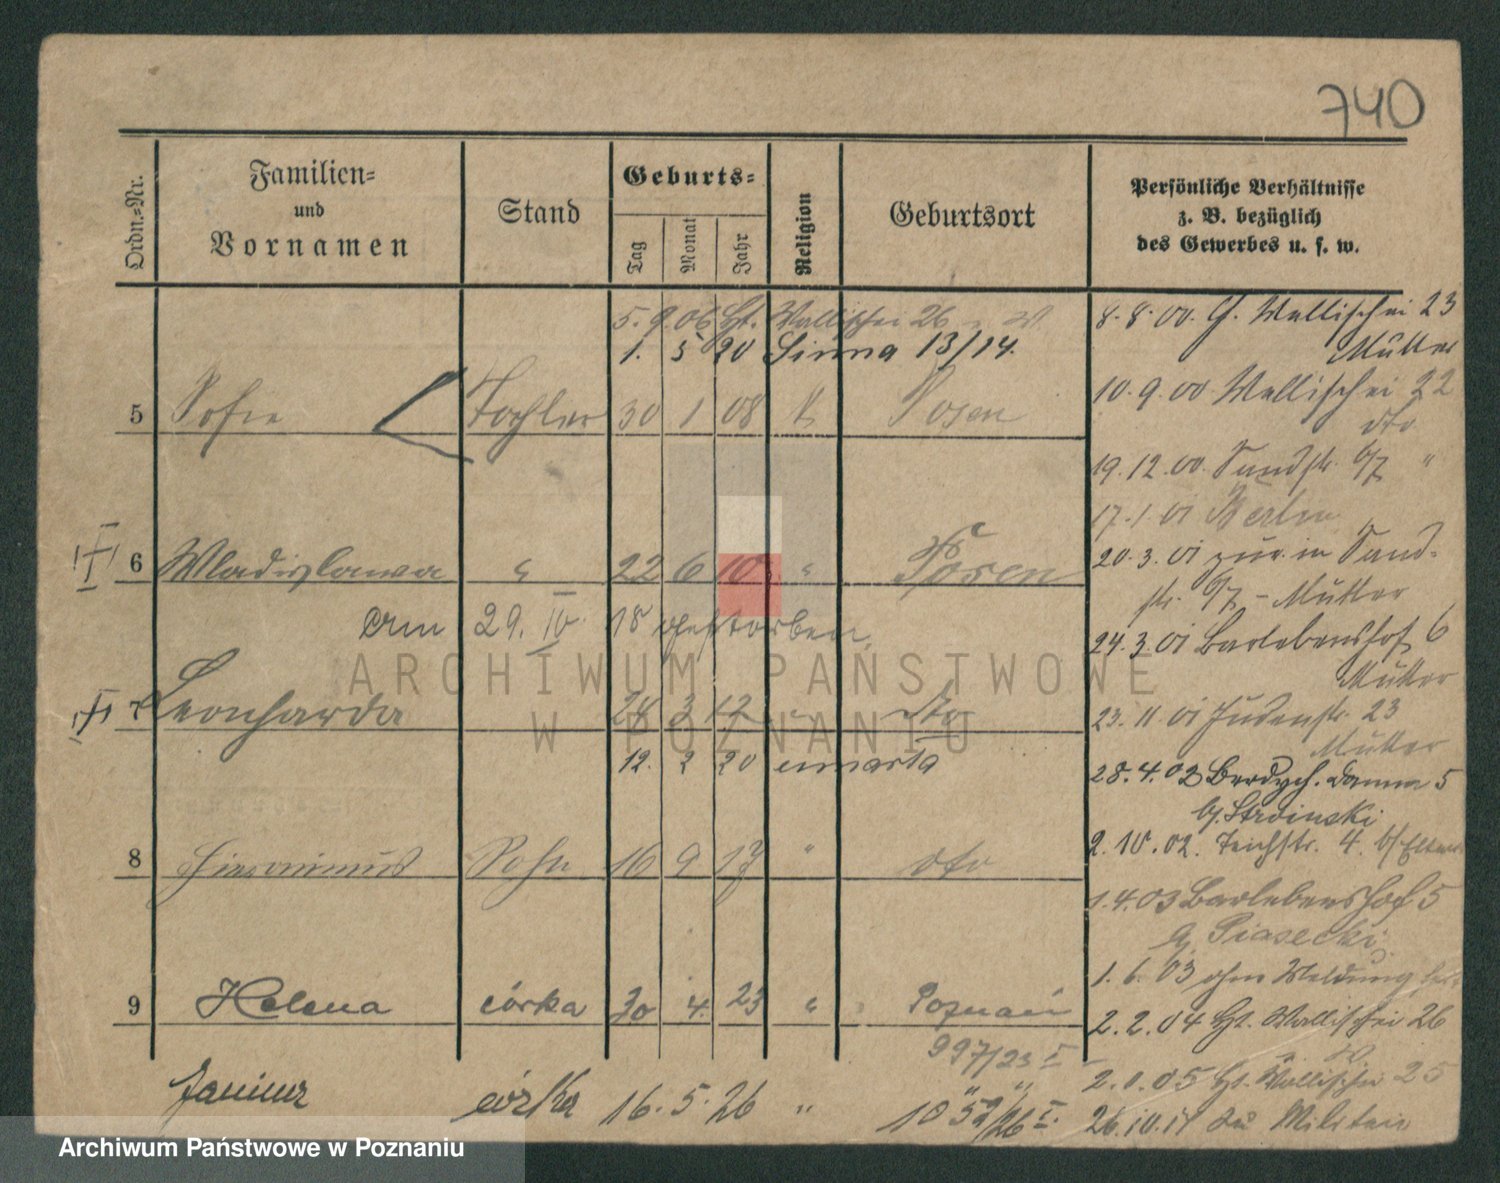 740
Ordn.-Nr.
Familien-
und
Vornamen
Stand
Geburts-
Tag Monat Jahr
Religion
Geburtsort
Persönliche Verhältnisse
z. B. bezüglich
des Gewerbes u. s. w.
5. 9. 06 Ht. Wallischei 26
1. 5 20 Sinna 13/14.
5 Sofie Tochter 30 1 08 K Posen
6 Wladislawa " 22 6 10 " Posen
am 29. IV. 18 gestorben
7 Leonharda 24 3 12 " dto
12. 2 20 umarła
8 Hieronimus Sohn 16 9 17 " dto
9 Helena córka 30 4. 23 " Poznań
997/23 I
Janina córka 16. 5. 26 "
8. 8. 00. G. Wallischei 23
Mutter
10. 9. 00 Wallischei 22
dto
19. 12. 00. Sandstr. 6/7 "
17. 1. 01 Berlin
20. 3. 01 zur. in Sand-
str. 6/7 - Mutter
24. 3. 01 Barlebenshof 6
Mutter
23. 11. 01 Judenstr. 23
Mutter
28. 4. 02 Berdych. Damm 5
b/
2. 10. 02. Teichstr. 4. b/ Eltern
1. 4. 03 Barlebenshof 5
Piasecki
1. 6. 03 ohne Meldung
2. 2. 04 Ht. Wallischei 26
05 Ht. Wallischei 25
26. 10. zu Militär
ARCHIWUM PAŃSTWOWE
W POZNANIU
Archiwum Państwowe w Poznaniu